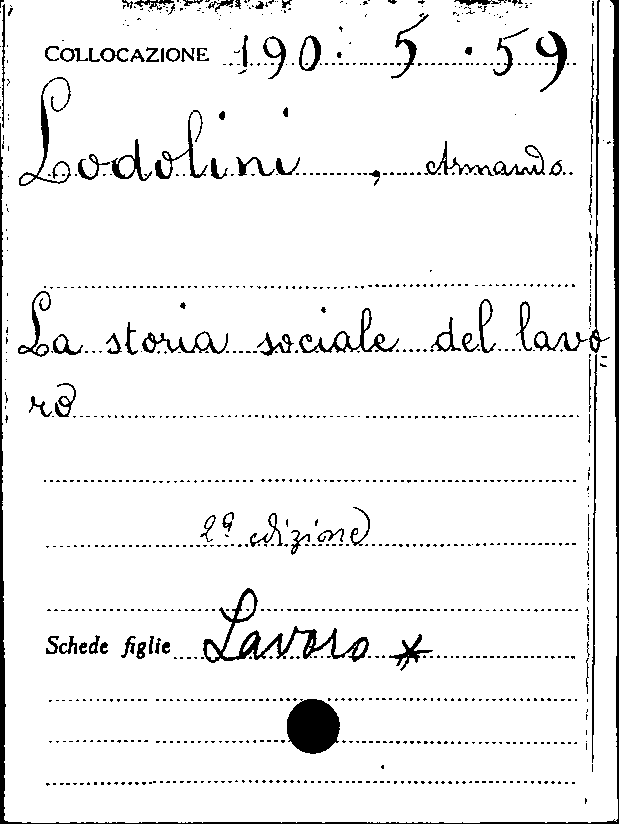 COLLOCAZIONE 190. 5. 59
Lodolini, Armando
La storia sociale del lavo=
ro
2ª edizione
Schede figlie Lavoro *